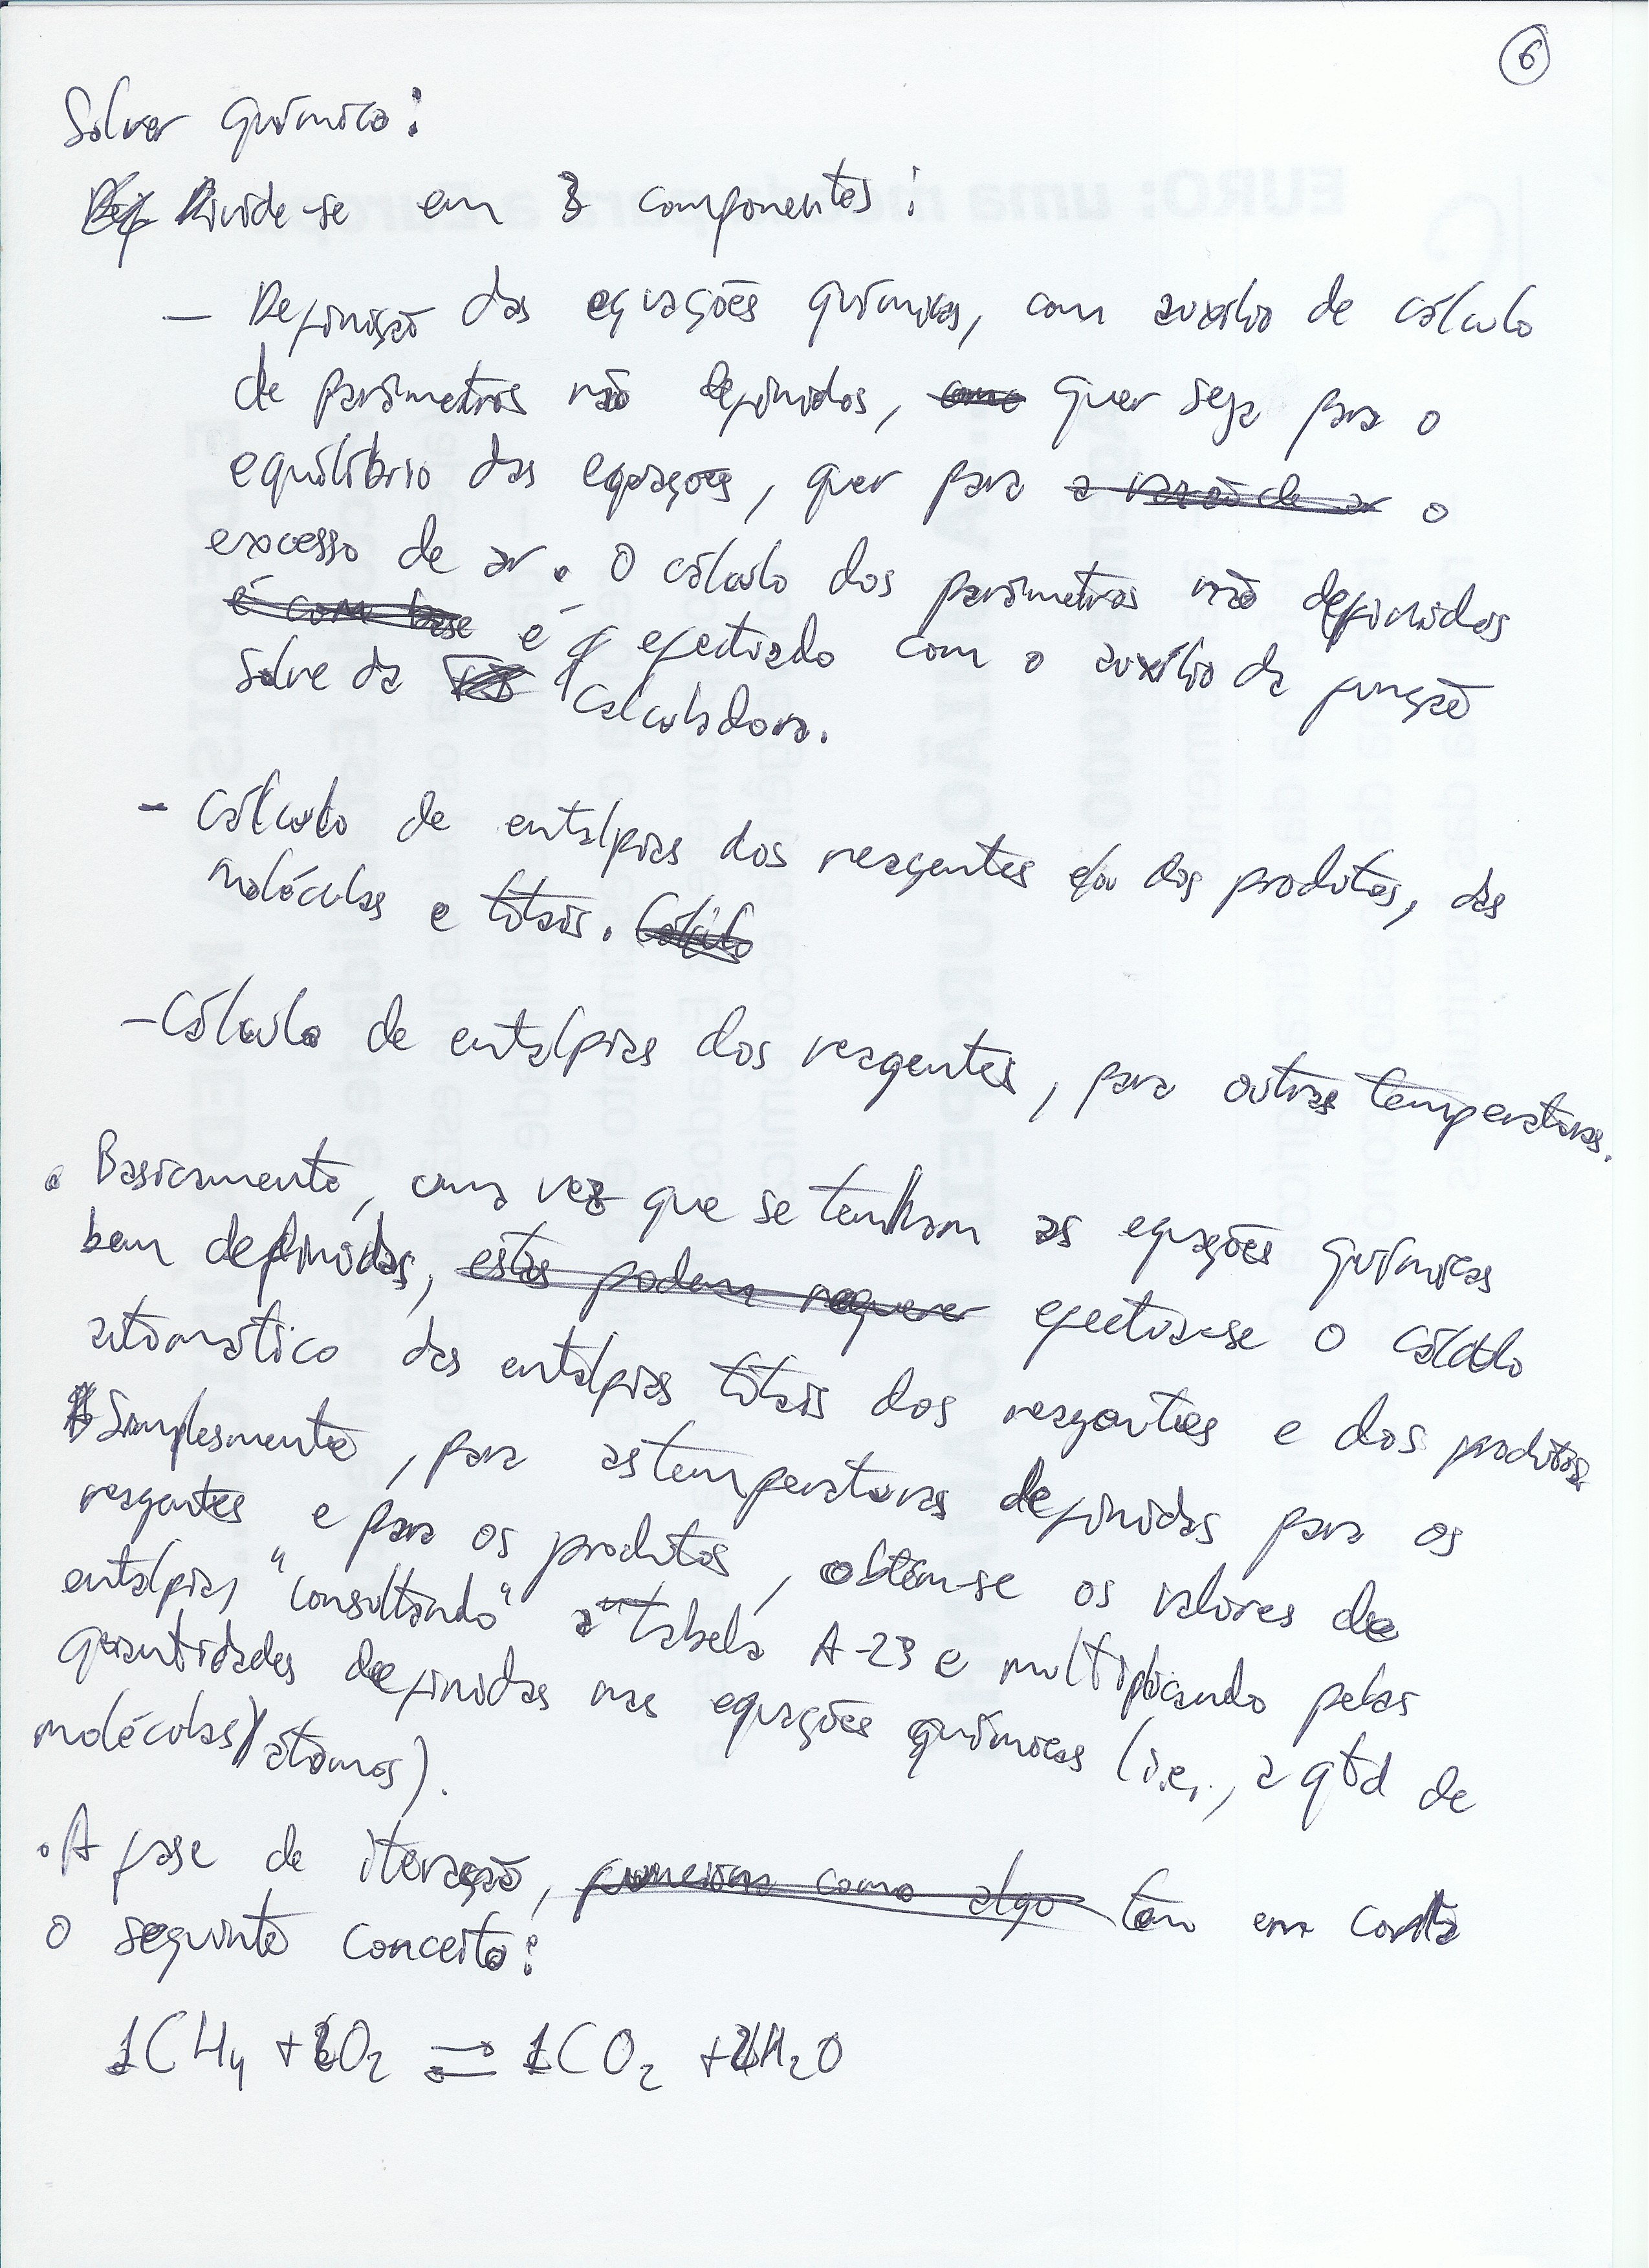 6
Solver químico:
Divide-se em 3 componentes:
- Definição das equações químicas, com auxílio de cálculo
de parâmetros não definidos, como quer seja para o
equilíbrio das equações, quer para a razão de ar o
excesso de ar. O cálculo dos parâmetros não definidos
é com base é efectuado com o auxílio da função
Solve da Calculadora.
- Cálculo de entalpias dos reagentes e/ou dos produtos, das
moléculas e totais. Cálculo
- Cálculo de entalpias dos reagentes, para outras temperaturas.
• Basicamente, uma vez que se tenham as equações químicas
bem definidas, estas podem requerer efectua-se o cálculo
automático das entalpias totais dos reagentes e dos produtos.
Simplesmente, para as temperaturas definidas para os
reagentes e para os produtos, obtém-se os valores de
entalpia, "consultando" a tabela A-23 e multiplicando pelas
quantidades definidas nas equações químicas (i.e., a qtd de
moléculas/átomos).
• A fase de iteração, funciona como algo tem em conta
o seguinte conceito:
1CH4 + 2O2 ⇌ 1CO2 + 2H2O